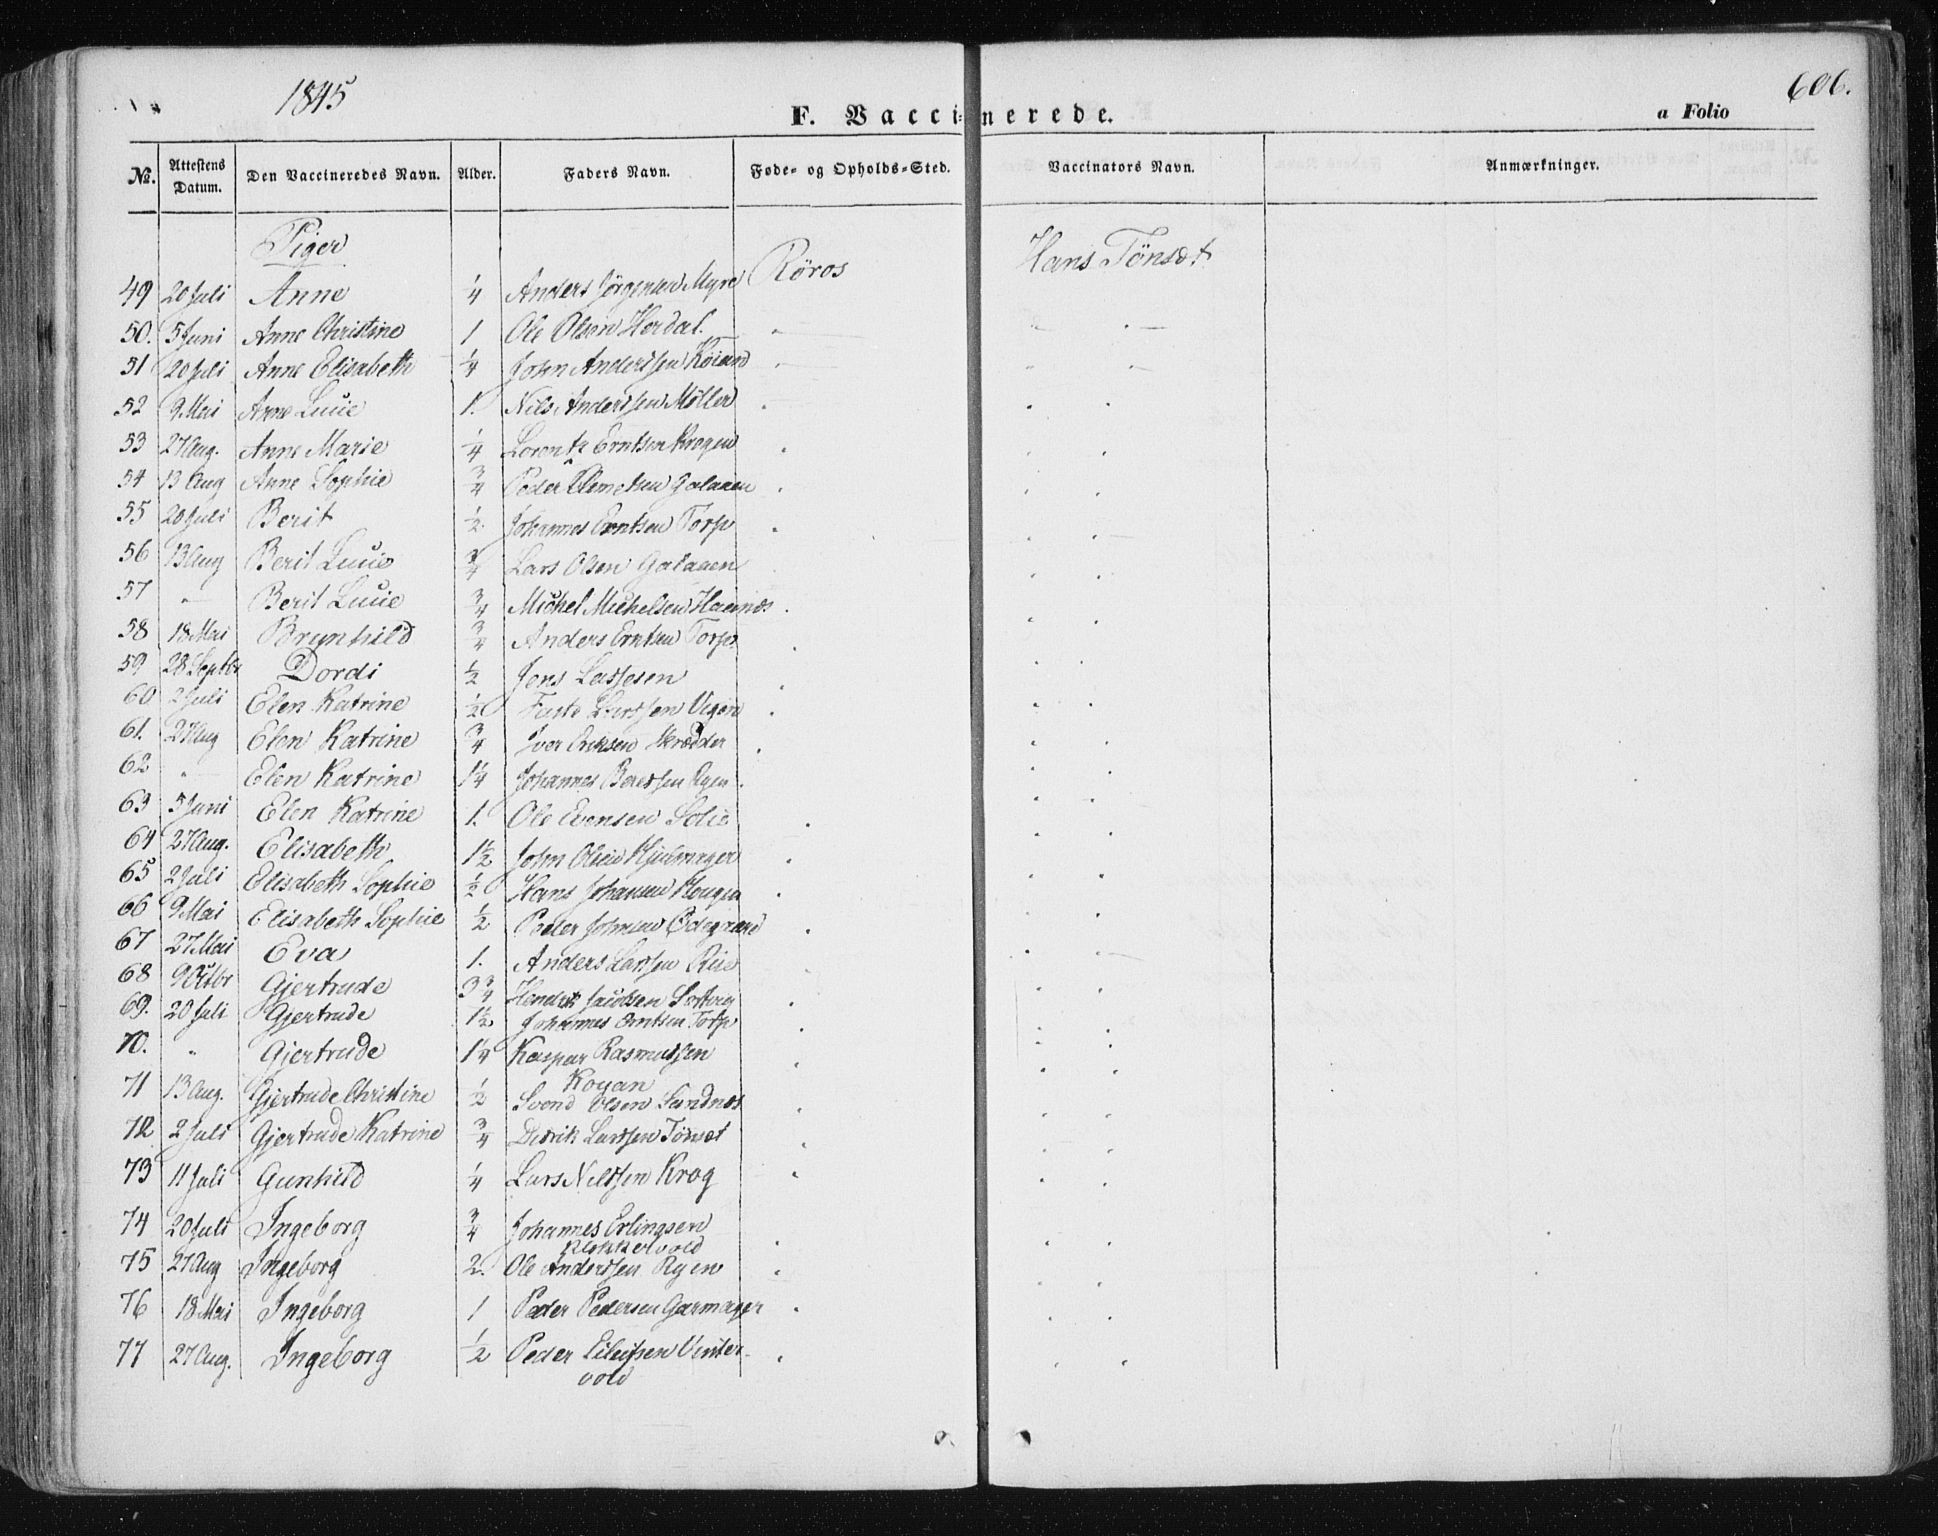 1845
606.
F. Vaccinerede.
a Folio
№. Attestens Datum. Den Vaccineredes Navn. Alder. Faders Navn. Føde- og Opholds-Sted. Vaccinators Navn. Anmærkninger.
Piger
49 20 Juli Anne 1/4 Anders Jörgensen Myre Röros Hans Tönset
50. 5 Juni Anne Christine 1 Ole Olsen Hordal. " " —
51 20 Juli Anne Elisabeth 1/4 John Anderssen " " "
52 9 Mai Anne Lucie 1. Nils Anderssen Møller " " "
53 27 Aug. Anne Marie 1/4 Lorentz Erntsen Krogen " " "
54 13 Aug Anne Sophie 3/4 Peder Clemetsen Galaaen " " "
55 20 Juli Berit 1/2. Johannes Erntsen Torp " " "
56 13 Aug Berit Lucie 3/4 Lars Olsen Galaaen " "
57 " Berit Lucie 3/4 Michel Michelsen " " "
58 18 Mai Brynhild 3/4 Anders Erntsen Torp. " " "
59 28 Septbr Dordi 1/2 Jens Lassesen " " "
60 2 Juli Elen Katrine 1/2 Larssen " " "
61. 27 Aug Elen Katrine 3/4 Iver Eriksen Skrædder " " "
62 " Elen Katrine 1 1/4 Johannes Ryen " " "
63 5 Juni Elen Katrine 1. Ole Evensen Solie " " "
64 27 Aug. Elisabeth 1 1/2 John Olsen Hjulmager " " "
65 2 Juli Elisabeth Sophie 1/2 Hans Johansen Hougen " " "
66 9 Mai Elisabeth Sophie 1/2 Peder Johnsen Ødegaard " " "
67 27 Mai Eva 1. Anders Larssen " " "
68 9 Octbr Gjertrude 3 3/4 Hendrik Jacobsen " " "
69. 20 Juli Gjertrude 1 1/2 Johannes Erntsen Torp " " "
70. " Gjertrude 1 1/4 Kaspar Rasmussen " " "
Koyan
71 13 Aug. Gjertrude Christine 1/2 Svend Olsen Sundnes " " "
72 2 Juli Gjertrude Katrine 3/4 Didrik Larssen Tönset " " "
73 11 Juli Gunhild 1/4 Lars Nilssen Krog " " "
74 20 Juli Ingeborg 3/4 Johannes Erlingsen " " "
Klokkervold
75 27 Aug Ingeborg 2. Ole Anderssen Ryen " " "
76 18 Mai Ingeborg 1 Peder Pedersen Garmager " " "
77 27 Aug. Ingeborg 1/2 Peder Eilertsen Vinter- " " "
vold